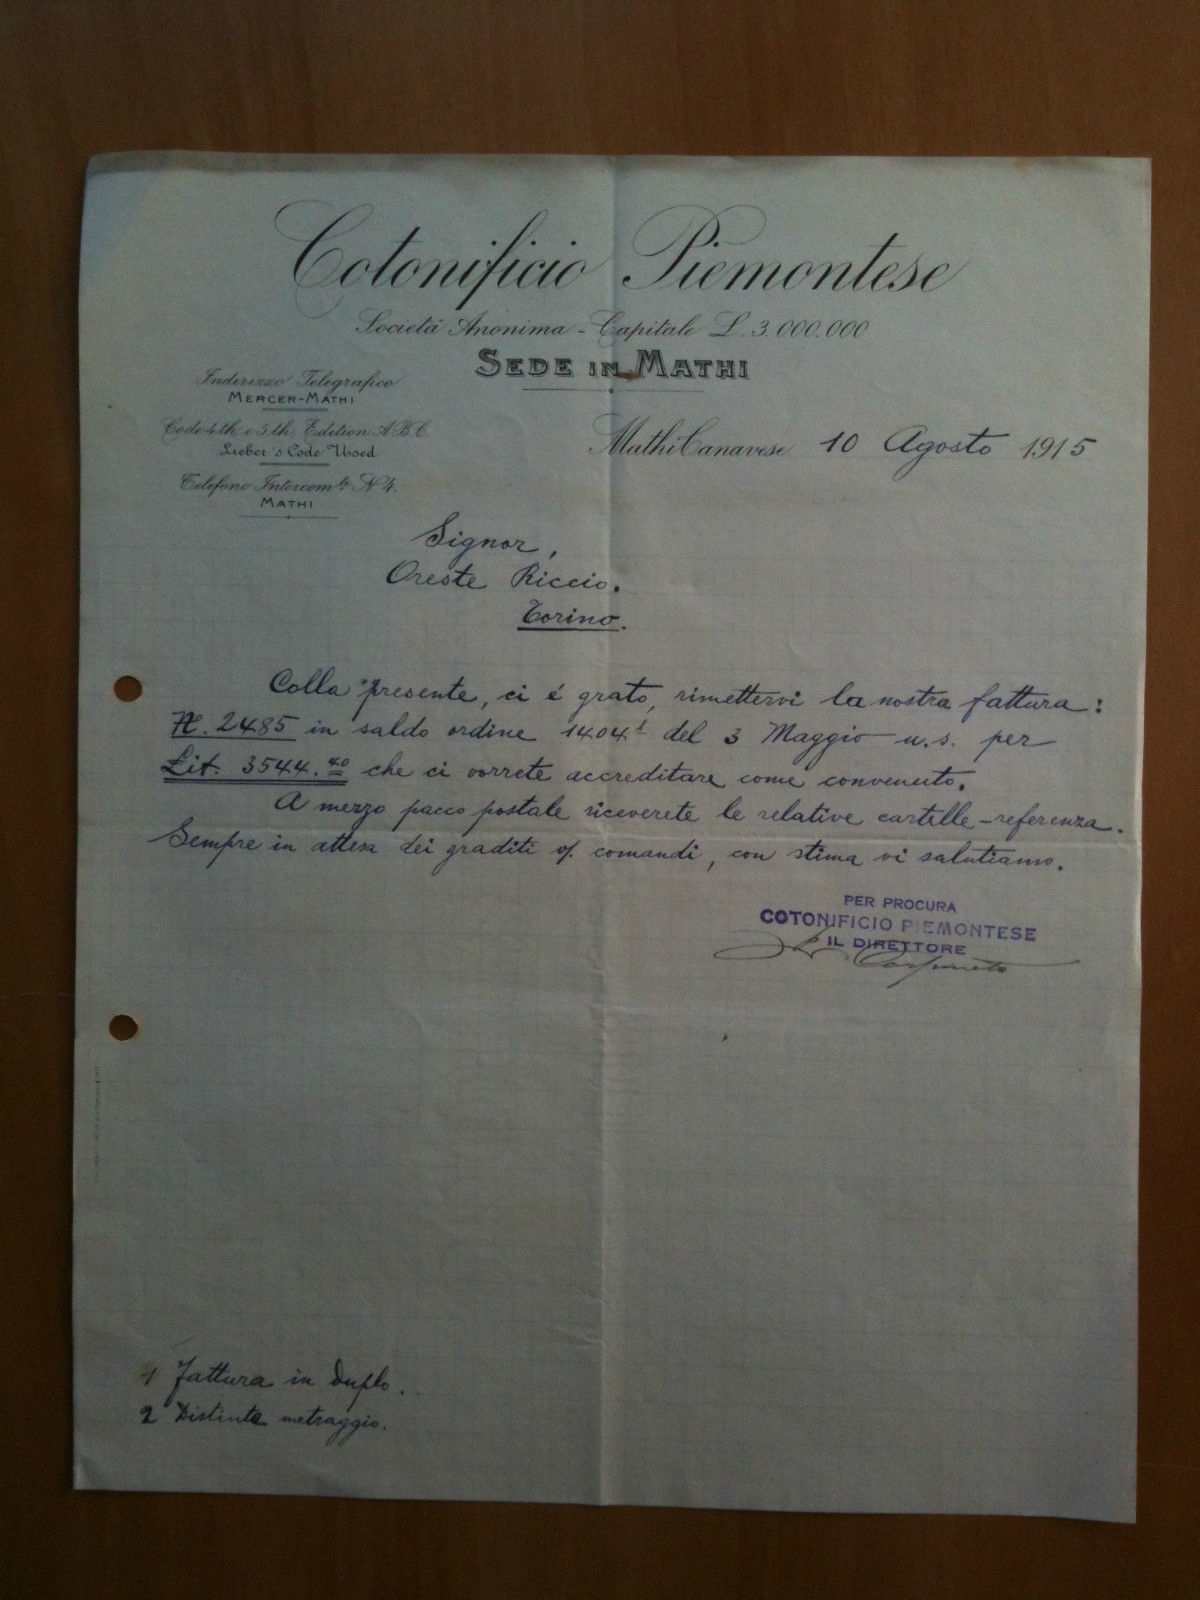 Cotonificio Piemontese
Società Anonima - Capitale L. 3.000.000
SEDE IN MATHI
Indirizzo Telegrafico
MERCER-MATHI
Code 4th e 5th Edition A B C
Lieber's Code Used
Telefono Intercom.le N 4.
MATHI
Mathi Canavese 10 Agosto 1915
Signor,
Oreste Riccio.
Torino.
Colla presente, ci é grato, rimettervi la nostra fattura:
N. 2485 in saldo ordine 1404 del 3 Maggio u.s. per
Lit. 3544.40 che ci vorrete accreditare come convenuto.
A mezzo pacco postale riceverete le relative cartelle-referenza.
Sempre in attesa dei graditi v/. comandi, con stima vi salutiamo.
PER PROCURA
COTONIFICIO PIEMONTESE
IL DIRETTORE
1 Fattura in Duplo.
2 Distinte metraggio.